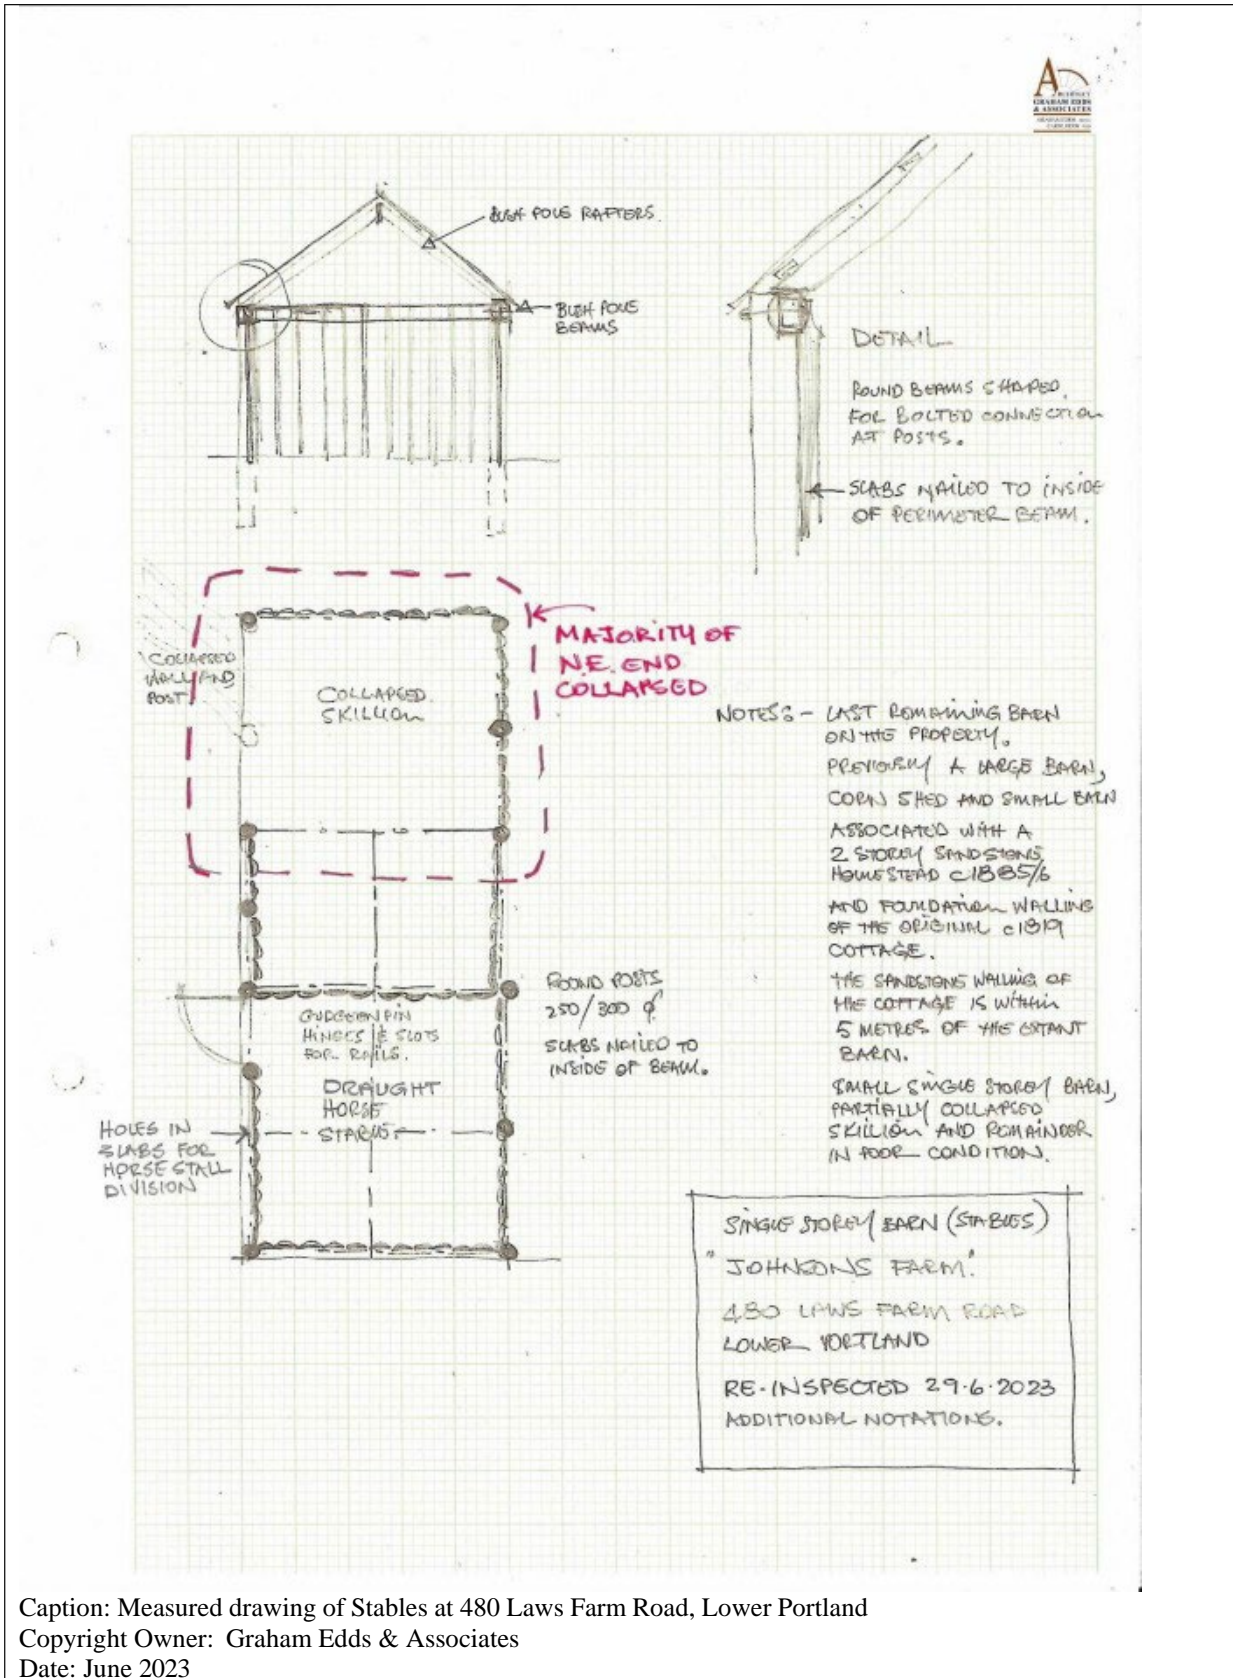 A
GRAHAM EDDS
& ASSOCIATES
BUSH POLE RAFTERS.
BUSH POLE
BEAMS
DETAIL
ROUND BEAMS SHAPED.
FOR BOLTED CONNECTION
AT POSTS.
SLABS NAILED TO INSIDE
OF PERIMETER BEAM.
MAJORITY OF
N.E. END
COLLAPSED
COLLAPSED
WALL AND
POST
COLLAPSED
SKILLION
NOTES:- LAST REMAINING BARN
ON THE PROPERTY.
PREVIOUSLY A LARGE BARN,
CORN SHED AND SMALL BARN
ASSOCIATED WITH A
2 STOREY SANDSTONE
HOMESTEAD c1885/6
AND FOUNDATION WALLING
OF THE ORIGINAL c1819
COTTAGE.
THE SANDSTONE WALLING OF
THE COTTAGE IS WITHIN
5 METRES OF THE EXTANT
BARN.
SMALL SINGLE STOREY BARN,
PARTIALLY COLLAPSED
SKILLION AND REMAINDER
IN POOR CONDITION.
ROUND POSTS
250/300 φ
SLABS NAILED TO
INSIDE OF BEAM.
GUDGEON PIN
HINGES & SLOTS
FOR RAILS.
DRAUGHT
HORSE
STABLE
HOLES IN
SLABS FOR
HORSE STALL
DIVISION
SINGLE STOREY BARN (STABLES)
"JOHNSONS FARM."
480 LAWS FARM ROAD
LOWER PORTLAND
RE-INSPECTED 29.6.2023
ADDITIONAL NOTATIONS.
Caption: Measured drawing of Stables at 480 Laws Farm Road, Lower Portland
Copyright Owner: Graham Edds & Associates
Date: June 2023